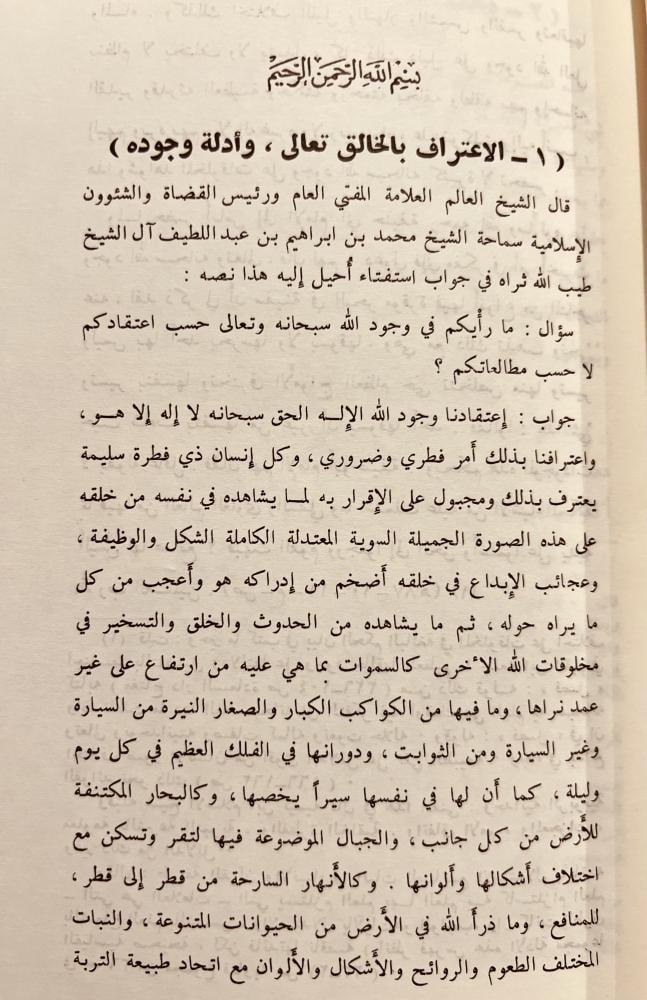 بسم الله الرحمن الرحيم
( ١ ـ الاعتراف بالخالق تعالى ، وأدلة وجوده )
قال الشيخ العالم العلامة المفتي العام ورئيس القضاة والشئوون
الإسلامية سماحة الشيخ محمد بن ابراهيم بن عبد اللطيف آل الشيخ
طيب الله ثراه في جواب استفتاء أُحيل إليه هذا نصه :
سؤال : ما رأْيكم في وجود الله سبحانه وتعالى حسب اعتقادكم
لا حسب مطالعاتكم ؟
جواب : إعتقادنا وجود الله الإلـــه الحق سبحانه لا إله إلا هــو ،
واعترافنا بذلك أَمر فطري وضروري ، وكل إنسان ذي فطرة سليمة
يعترف بذلك ومجبول على الإقرار به لمـــا يشاهده في نفسه من خلقه
على هذه الصورة الجميلة السوية المعتدلة الكاملة الشكل والوظيفة ،
وعجائب الإبداع في خلقه أَضخم من إدراكه هو وأَعجب من كل
ما يراه حوله ، ثـم ما يشاهده من الحدوث والخلق والتسخير في
مخلوقات الله الأخرى كالسموات بما هي عليه من ارتفاع على غير
عمد نراها ، وما فيها من الكواكب الكبار والصغار النيرة من السيارة
وغير السيارة ومن الثوابت ، ودورانها في الفلك العظيم في كل يوم
وليلة ، كما أَن لها في نفسها سيراً يخصها ، وكالبحار المكتنفة
للأَرض من كل جانب ، والجبال الموضوعة فيها لتقر وتسكن مع
اختلاف أَشكالها وأَلوانها . وكالأَنهار السارحة من قطر إلى قطر ،
للمنافع ، وما ذرأَ الله في الأَرض من الحيوانات المتنوعة ، والنبات
المختلف الطعوم والروائح والأَشكال والأَلوان مع اتحاد طبيعة التربة